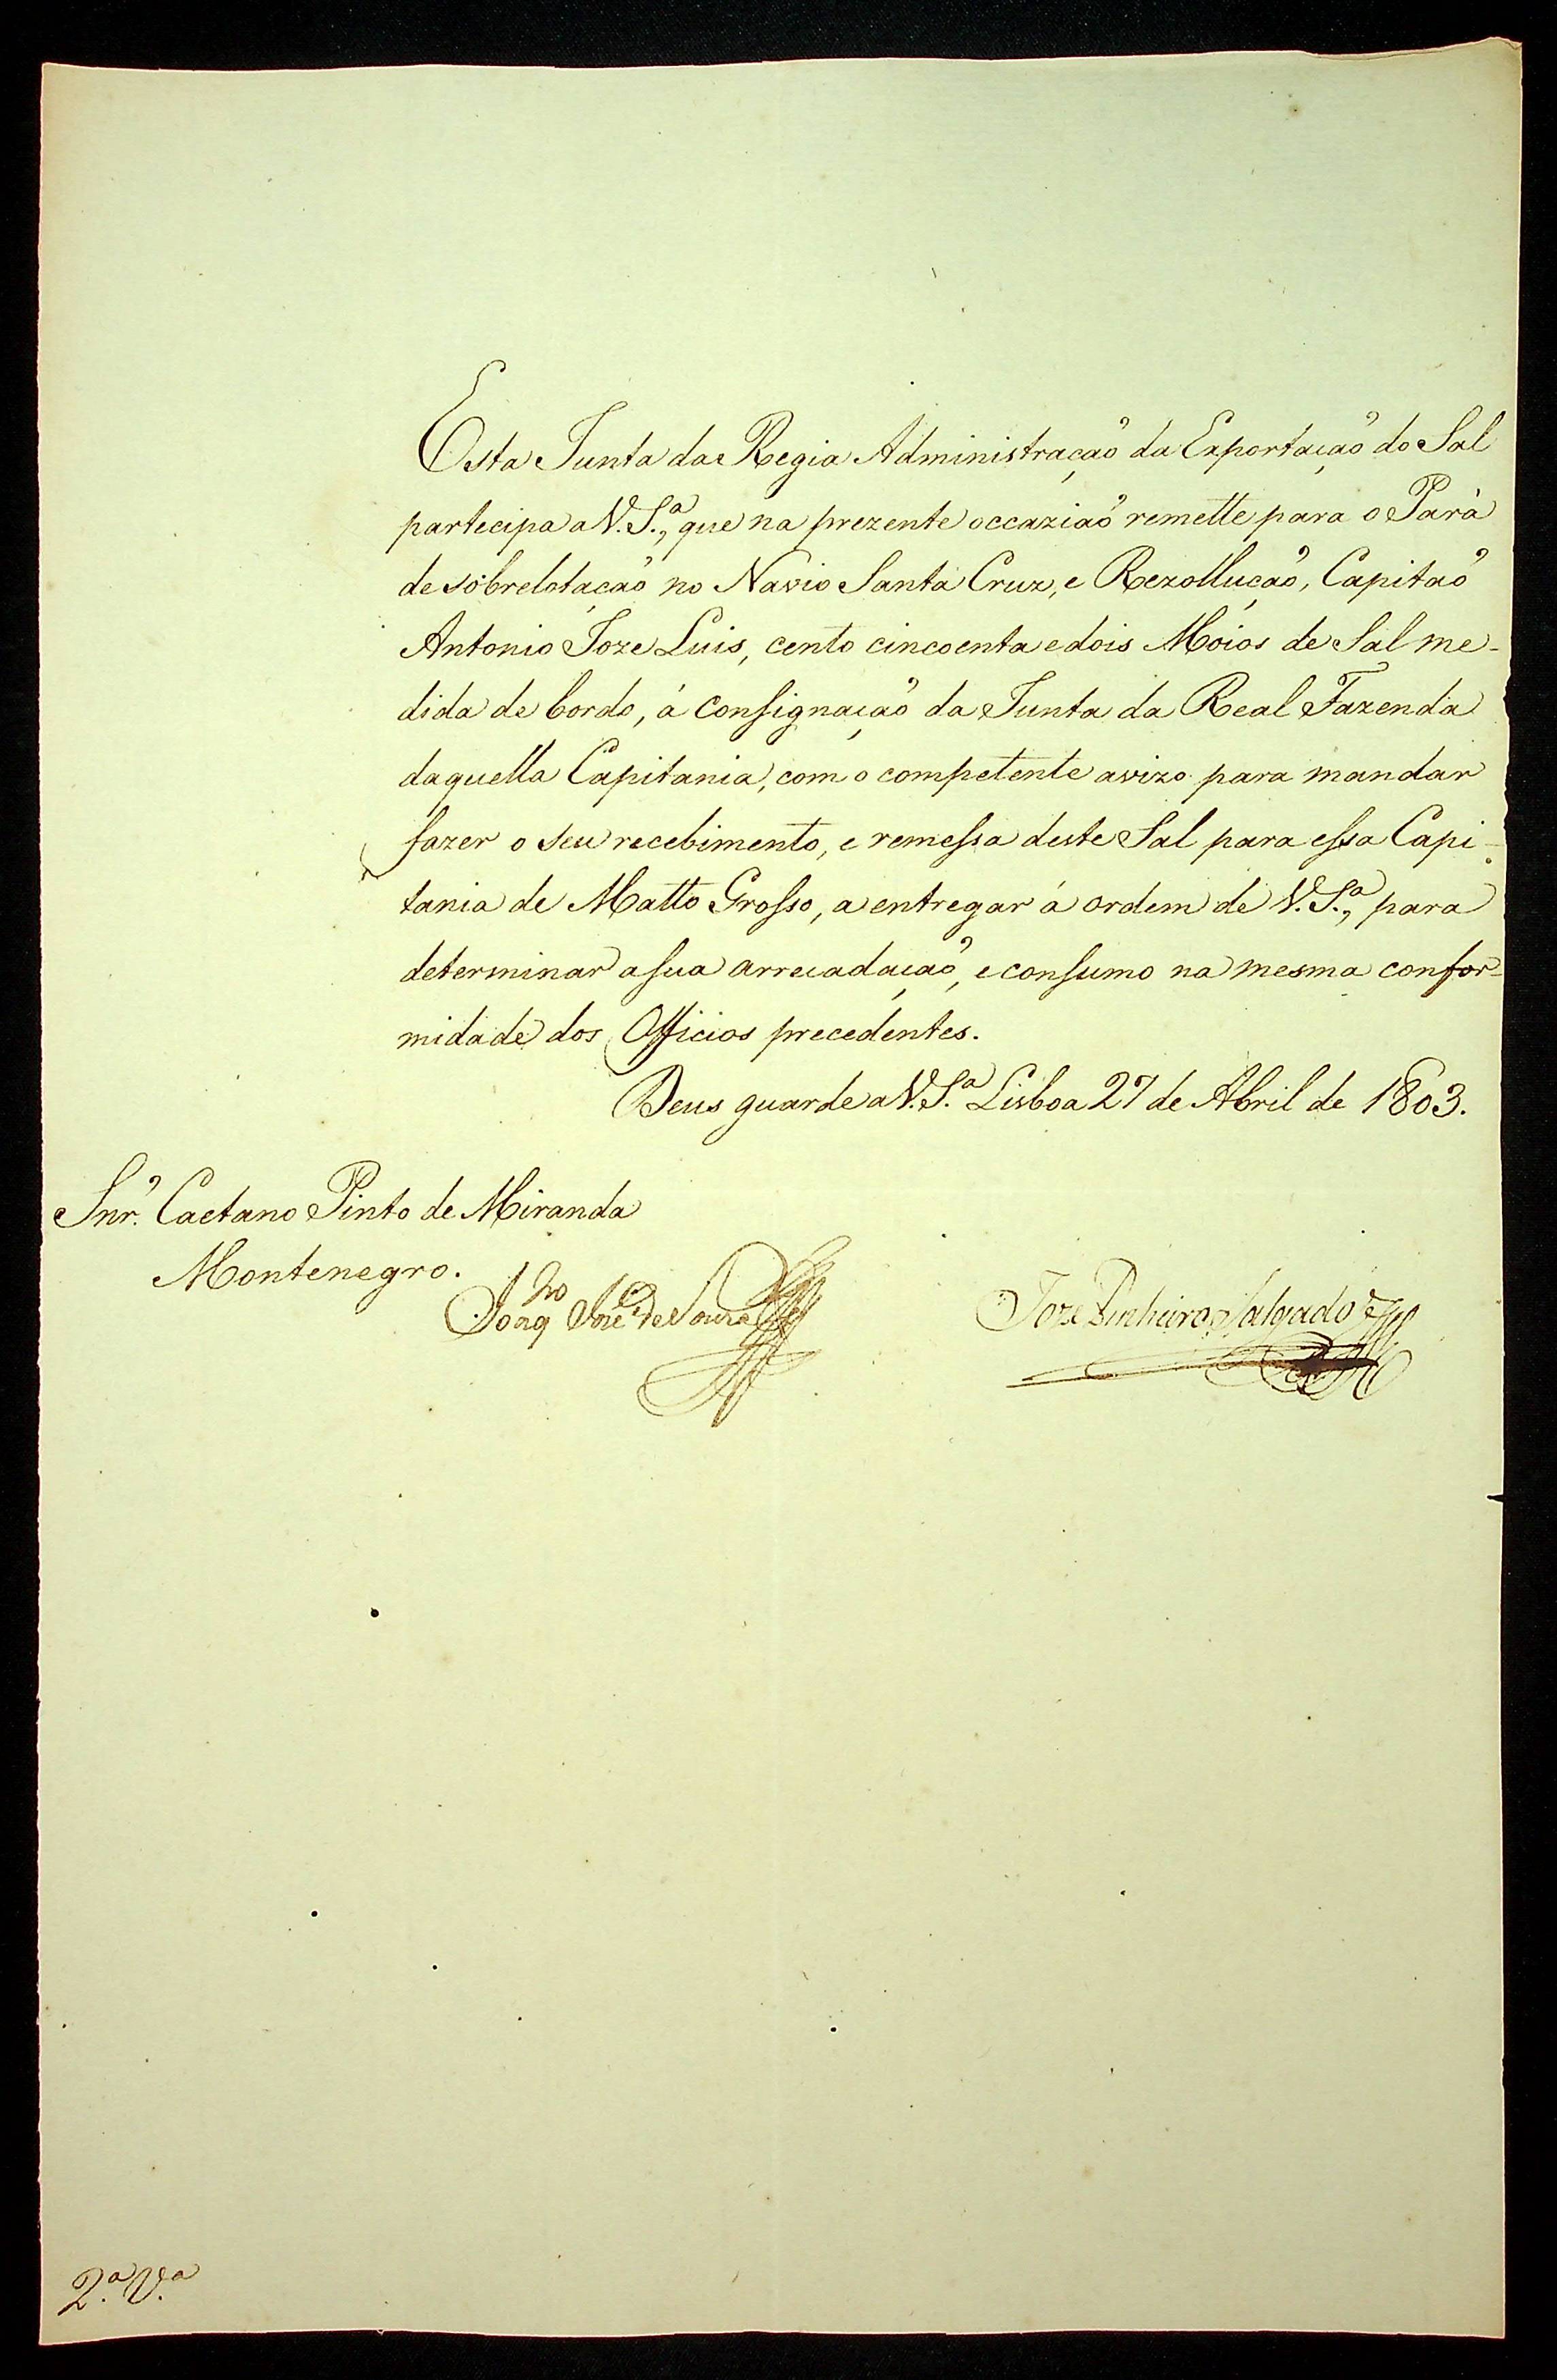 Esta Junta da Regia Administração da Exportação do Sal
partecipa a V. S.ª, que na prezente occazião remette para o Parà
de sobrelotação no Navio Santa Cruz, e Rezollução, Capitão
Antonio Joze Luis, cento cincoenta e dois Moios de Sal me-
dida de bordo, á Consignação da Junta da Real Fazenda
daquella Capitania, com o competente avizo para mandar
fazer o seu recebimento, e remessa deste Sal para essa Capi-
tania de Matto Grosso, a entregar á ordem de V. S.ª, para
determinar a sua arrecadação, e consumo na mesma confor-
midade dos Officios precedentes.
Deus guarde a V. S.ª Lisboa 27 de Abril de 1803.
Snr. Caetano Pinto de Miranda
Montenegro.
Joaq José de Souza
Joze Pinheiro Salgado
2.ª V.ª